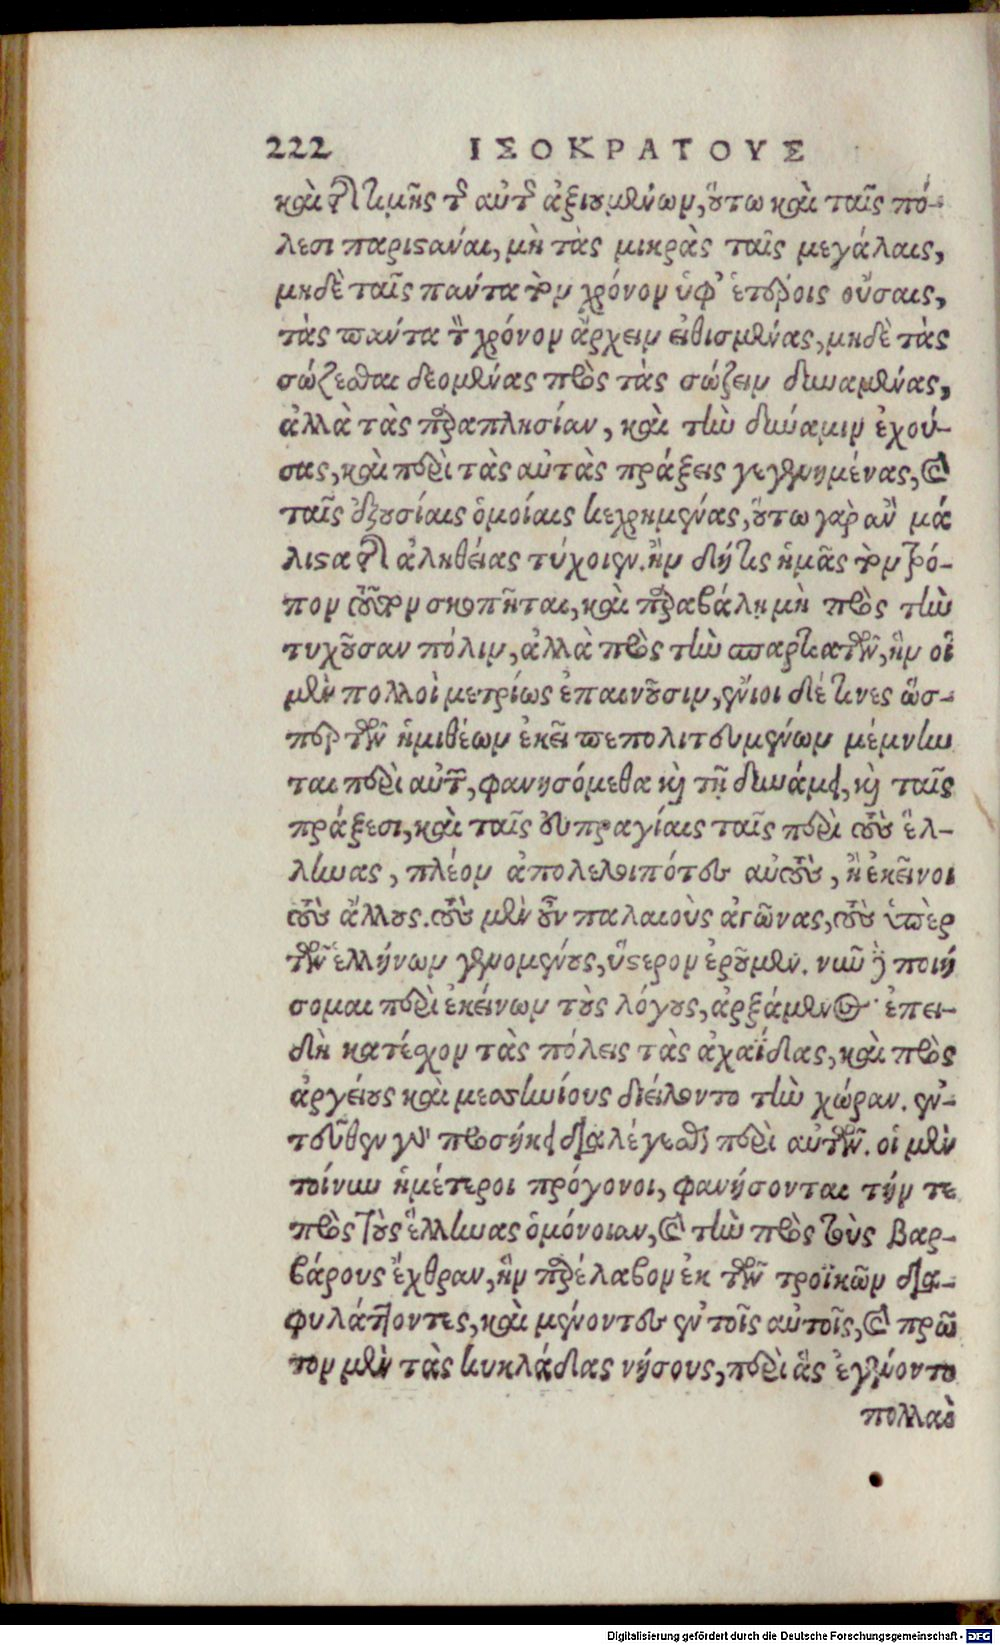 222 ΙΣΟΚΡΑΤΟΥΣ
καὶ τῆς τιμῆς τῆς αὐτῆς ἀξιουμένων, οὕτω καὶ ταῖς πό-
λεσι παριστάναι, μὴ τὰς μικρὰς ταῖς μεγάλαις,
μηδὲ ταῖς πάντα τὸν χρόνον ὑφ' ἑτέροις οὔσαις,
τὰς πάντα τὸν χρόνον ἄρχειν εἰθισμένας, μηδὲ τὰς
σώζεσθαι δεομένας πρὸς τὰς σώζειν δυναμένας,
ἀλλὰ τὰς παραπλησίαν, καὶ τὴν δύναμιν ἐχού-
σας, καὶ περὶ τὰς αὐτὰς πράξεις γεγενημένας, καὶ
ταῖς ἐξουσίαις ὁμοίαις κεχρημένας, οὕτω γὰρ ἂν μά
λιστα τῆς ἀληθείας τύχοιεν. ἢν δή τις ἡμᾶς τὸν τρό-
πον τοῦτον σκοπῆται, καὶ παραβάλῃ μὴ πρὸς τὴν
τυχοῦσαν πόλιν, ἀλλὰ πρὸς τὴν σπαρτιατῶν, ἣν οἱ
μὲν πολλοὶ μετρίως ἐπαινοῦσιν, ἔνιοι δέ τινες ὥσ-
περ τῶν ἡμιθέων ἐκεῖ πεπολιτευμένων μέμνην
ται περὶ αὐτῶν, φανησόμεθα καὶ τῇ δυνάμει, καὶ ταῖς
πράξεσι, καὶ ταῖς εὐπραγίαις ταῖς περὶ τοὺς ἕλ-
ληνας, πλέον ἀπολελοιπότες αὐτοὺς, ἢ ἐκεῖνοι
τοὺς ἄλλους. τοὺς μὲν οὖν παλαιοὺς ἀγῶνας, τοὺς ὑπὲρ
τῶν ἑλλήνων γενομένους, ὕστερον ἐροῦμεν. νῦν δὲ ποιή
σομαι περὶ ἐκείνων τοὺς λόγους, ἀρξάμενος ἐπει-
δὴ κατέσχον τὰς πόλεις τὰς ἀχαΐδας, καὶ πρὸς
ἀργείους καὶ μεσσηνίους διείλοντο τὴν χώραν. ἐν-
τεῦθεν γὰρ προσήκει διαλέγεσθαι περὶ αὐτῶν. οἱ μὲν
τοίνυν ἡμέτεροι πρόγονοι, φανήσονται τήν τε
πρὸς τοὺς ἕλληνας ὁμόνοιαν, καὶ τὴν πρὸς τοὺς βαρ-
βάρους ἔχθραν, ἣν παρέλαβον ἐκ τῶν τροϊκῶν δια-
φυλάττοντες, καὶ μένοντες ἐν τοῖς αὐτοῖς, καὶ πρῶ
τον μὲν τὰς κυκλάδας νήσους, περὶ ἃς ἐγένοντο
πολλαὶ
Digitalisierung gefördert durch die Deutsche Forschungsgemeinschaft - DFG